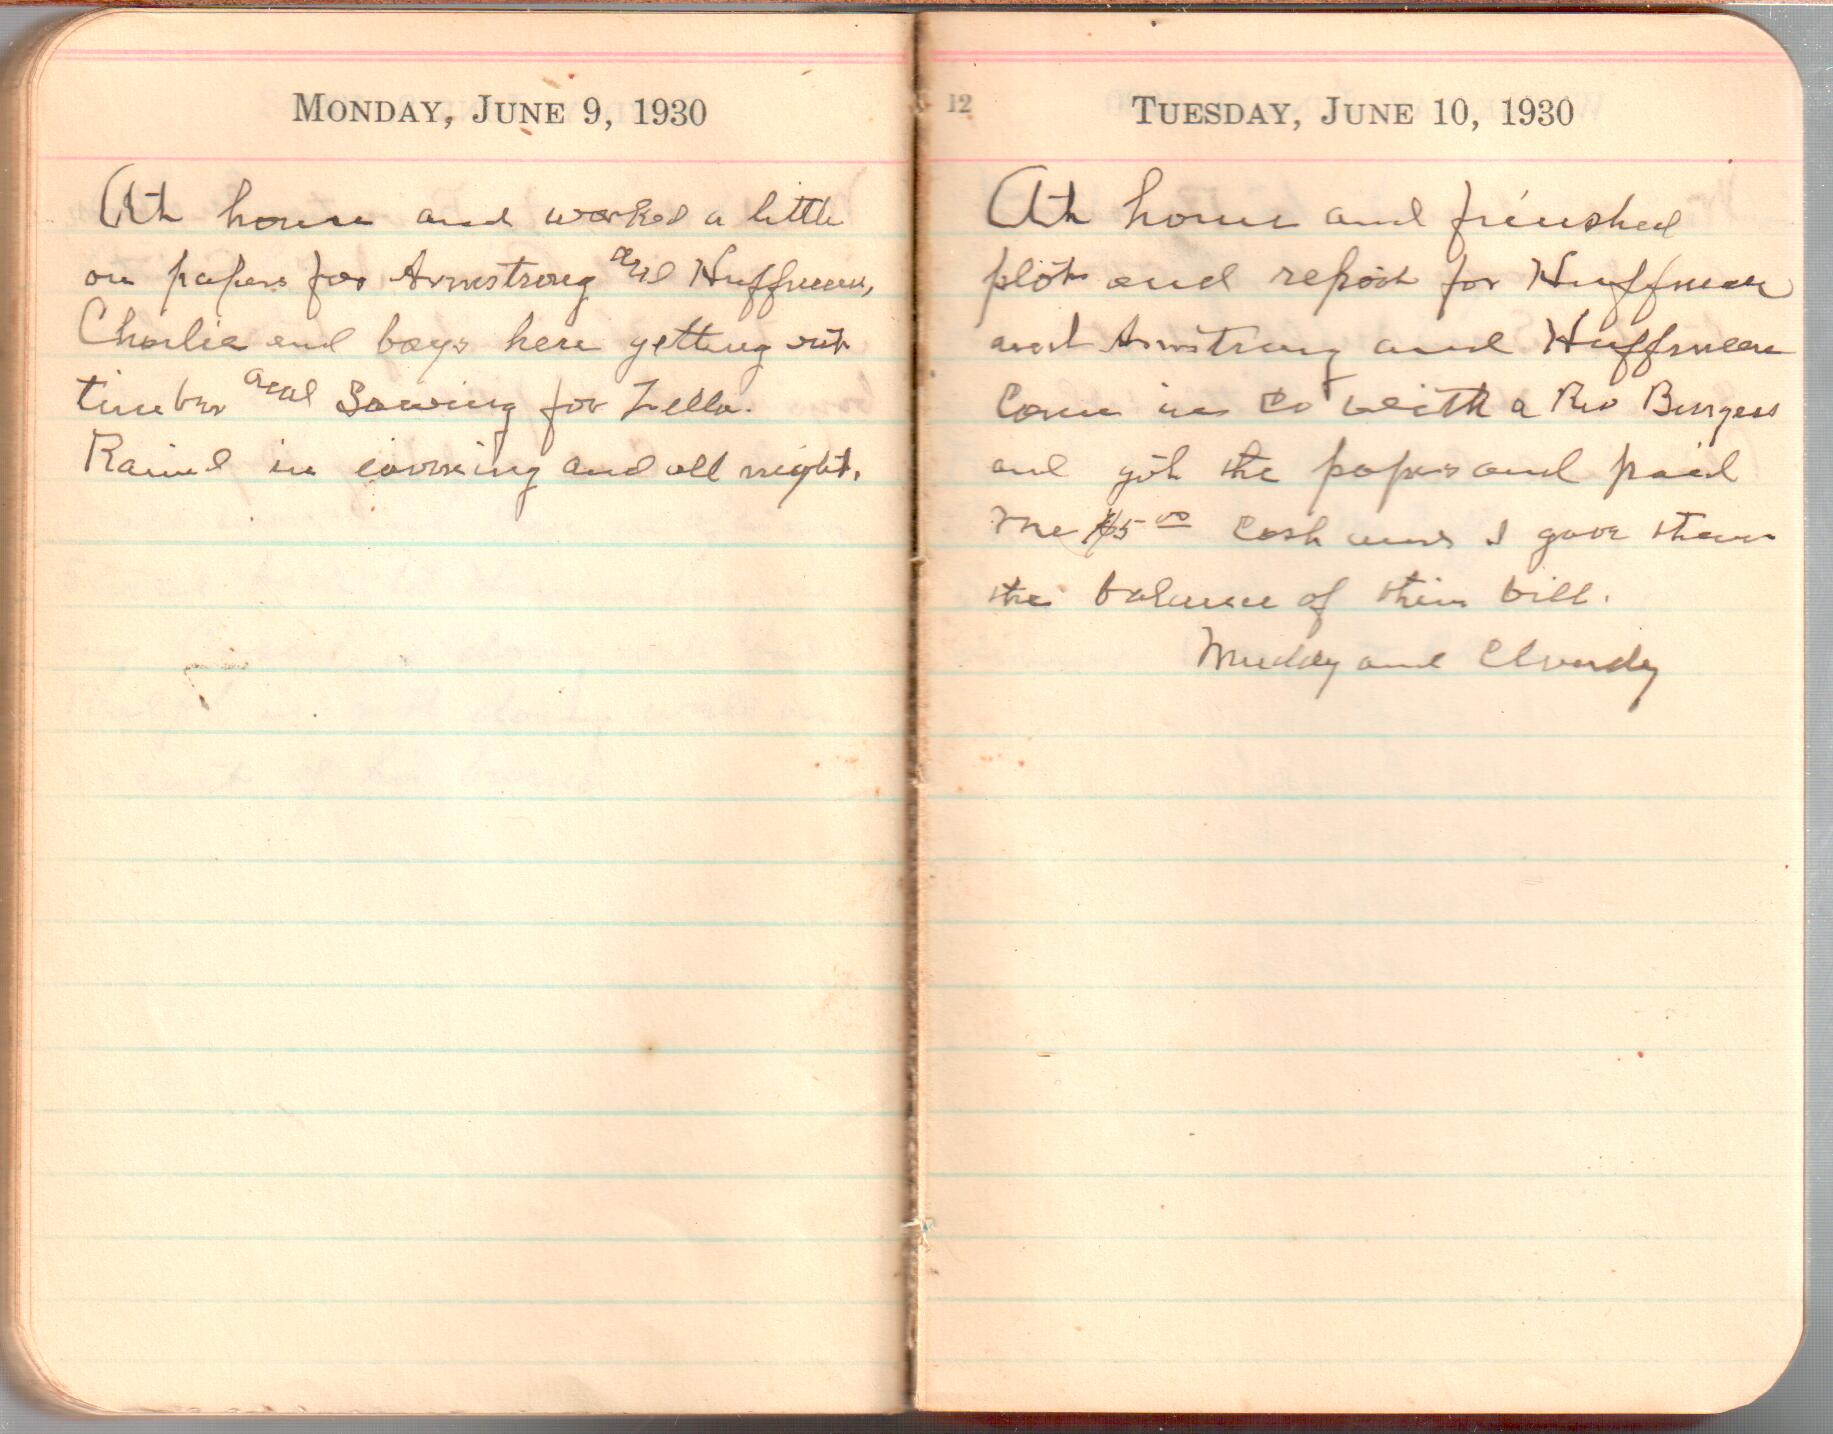 MONDAY, JUNE 9, 1930
At home and worked a little
on papers for Armstrong and Huffman,
Charlie and boys here getting out
timber and Sawing for Zella.
Rained in evening and all night.
12
TUESDAY, JUNE 10, 1930
At home and finished
plot and report for Huffman
and Armstrong and Huffman
Come in Co with a Rev Burgess
and got the papers and paid
me $5 00 Cash and I gave them
the balance of their bill.
Muddy and Clowdy